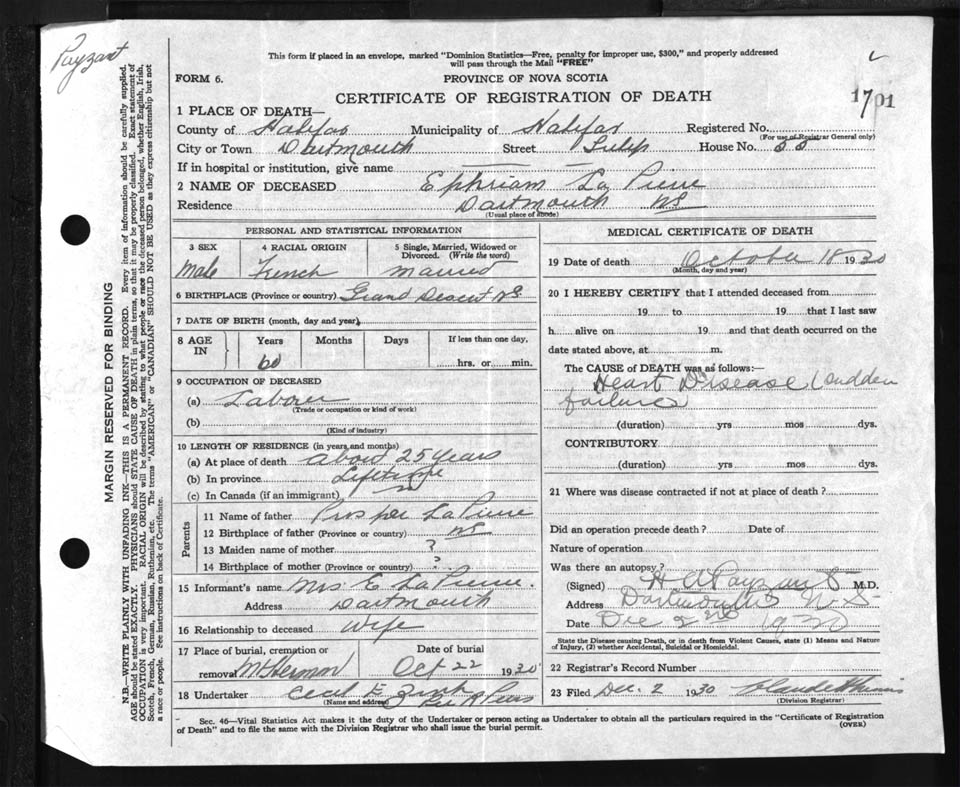 Payzant
This form if placed in an envelope, marked "Dominion Statistics—Free, penalty for improper use, $300," and properly addressed
will pass through the Mail "FREE"
FORM 6.
PROVINCE OF NOVA SCOTIA
CERTIFICATE OF REGISTRATION OF DEATH
1701
1 PLACE OF DEATH—
County of Halifax Municipality of Halifax Registered No.
(For use of Registrar General only)
City or Town Dartmouth Street Tulip House No. 55
If in hospital or institution, give name
2 NAME OF DECEASED Ephriam La Pierre
Residence Dartmouth NS
(Usual place of abode)
MARGIN RESERVED FOR BINDING
N.B.—WRITE PLAINLY WITH UNFADING INK—THIS IS A PERMANENT RECORD. Every item of information should be carefully supplied.
AGE should be stated EXACTLY. PHYSICIANS should STATE CAUSE OF DEATH in plain terms, so that it may be properly classified. Exact statement of
OCCUPATION is very important. RACIAL ORIGIN will be described by stating to what people or race the deceased person belonged, whether English, Irish,
Scotch, French, German, Russian, Ruthenian, etc. The terms "AMERICAN" or "CANADIAN" SHOULD NOT BE USED as they express citizenship but not
a race or people. See instructions on back of Certificate.
PERSONAL AND STATISTICAL INFORMATION
3 SEX
male
4 RACIAL ORIGIN
French
5 Single, Married, Widowed or
Divorced. (Write the word)
married
6 BIRTHPLACE (Province or country) Grand Desert NS
7 DATE OF BIRTH (month, day and year)
8 AGE IN
Years
60
Months
Days
If less than one day,
hrs. or min.
9 OCCUPATION OF DECEASED
(a) Laborer
(Trade or occupation or kind of work)
(b)
(Kind of industry)
10 LENGTH OF RESIDENCE (in years and months)
(a) At place of death about 25 years
(b) In province Lifetime
(c) In Canada (if an immigrant)
Parents
11 Name of father Prosper La Pierre
12 Birthplace of father (Province or country) NS
13 Maiden name of mother ?
14 Birthplace of mother (Province or country) ?
15 Informant's name Mrs E La Pierre.
Address Dartmouth
16 Relationship to deceased Wife
17 Place of burial, cremation or
removal Mt Hermon
Date of burial
Oct 22 1930
18 Undertaker Cecil E Zink
(Name and address)
MEDICAL CERTIFICATE OF DEATH
19 Date of death October 18 1930
(Month, day and year)
20 I HEREBY CERTIFY that I attended deceased from
19 to 19 that I last saw
h alive on 19 and that death occurred on
date stated above, at m.
The CAUSE of DEATH was as follows:—
Heart Disease (sudden
failure)
(duration) yrs mos dys.
CONTRIBUTORY
(duration) yrs mos dys.
21 Where was disease contracted if not at place of death?
Did an operation precede death? Date of
Nature of operation
Was there an autopsy?
(Signed) H A Payzant M.D.
Address Dartmouth N S
Date Dec 2nd 1930
State the Disease causing Death, or in death from Violent Causes, state (1) Means and Nature
of Injury, (2) whether Accidental, Suicidal or Homicidal.
22 Registrar's Record Number
23 Filed Dec. 2 1930
(Division Registrar)
Sec. 46—Vital Statistics Act makes it the duty of the Undertaker or person acting as Undertaker to obtain all the particulars required in the "Certificate of Registration
of Death" and to file the same with the Division Registrar who shall issue the burial permit.
(OVER)